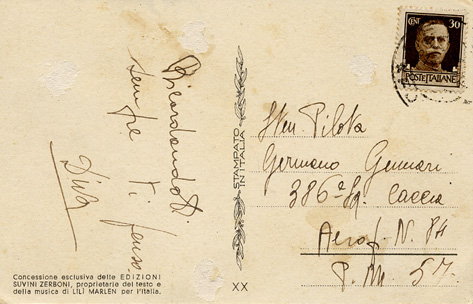 Ricordandoti
sempre ti penso
Dina
Concessione esclusiva delle EDIZIONI
SUVINI ZERBONI, proprietarie del testo e
della musica di LILÌ MARLEN per l'Italia.
STAMPATO
IN ITALIA
XX
CENT 30
POSTE ITALIANE
Sten. Pilota
Germano Gennari
386ª Sq. Caccia
Aerop. N. 84
P. M 57.